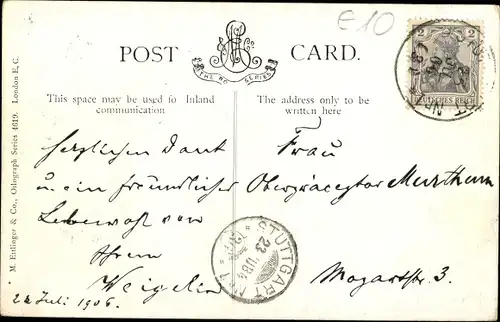 €10
POST CARD.
THE W SERIES
2 2
DEUTSCHES REICH
This space may be used fo Inland
communication
The address only to be
written here
M. Ettlinger & Co., Oilograph Series 4619. London E.C.
Herzlichen Dank
u. ein freundliches
Lebewohl von
Ihrem
Weigelin
24 Juli 1906.
Frau
Oberpräceptor
Mozartstr. 3.
STUTTGART No. 1
23